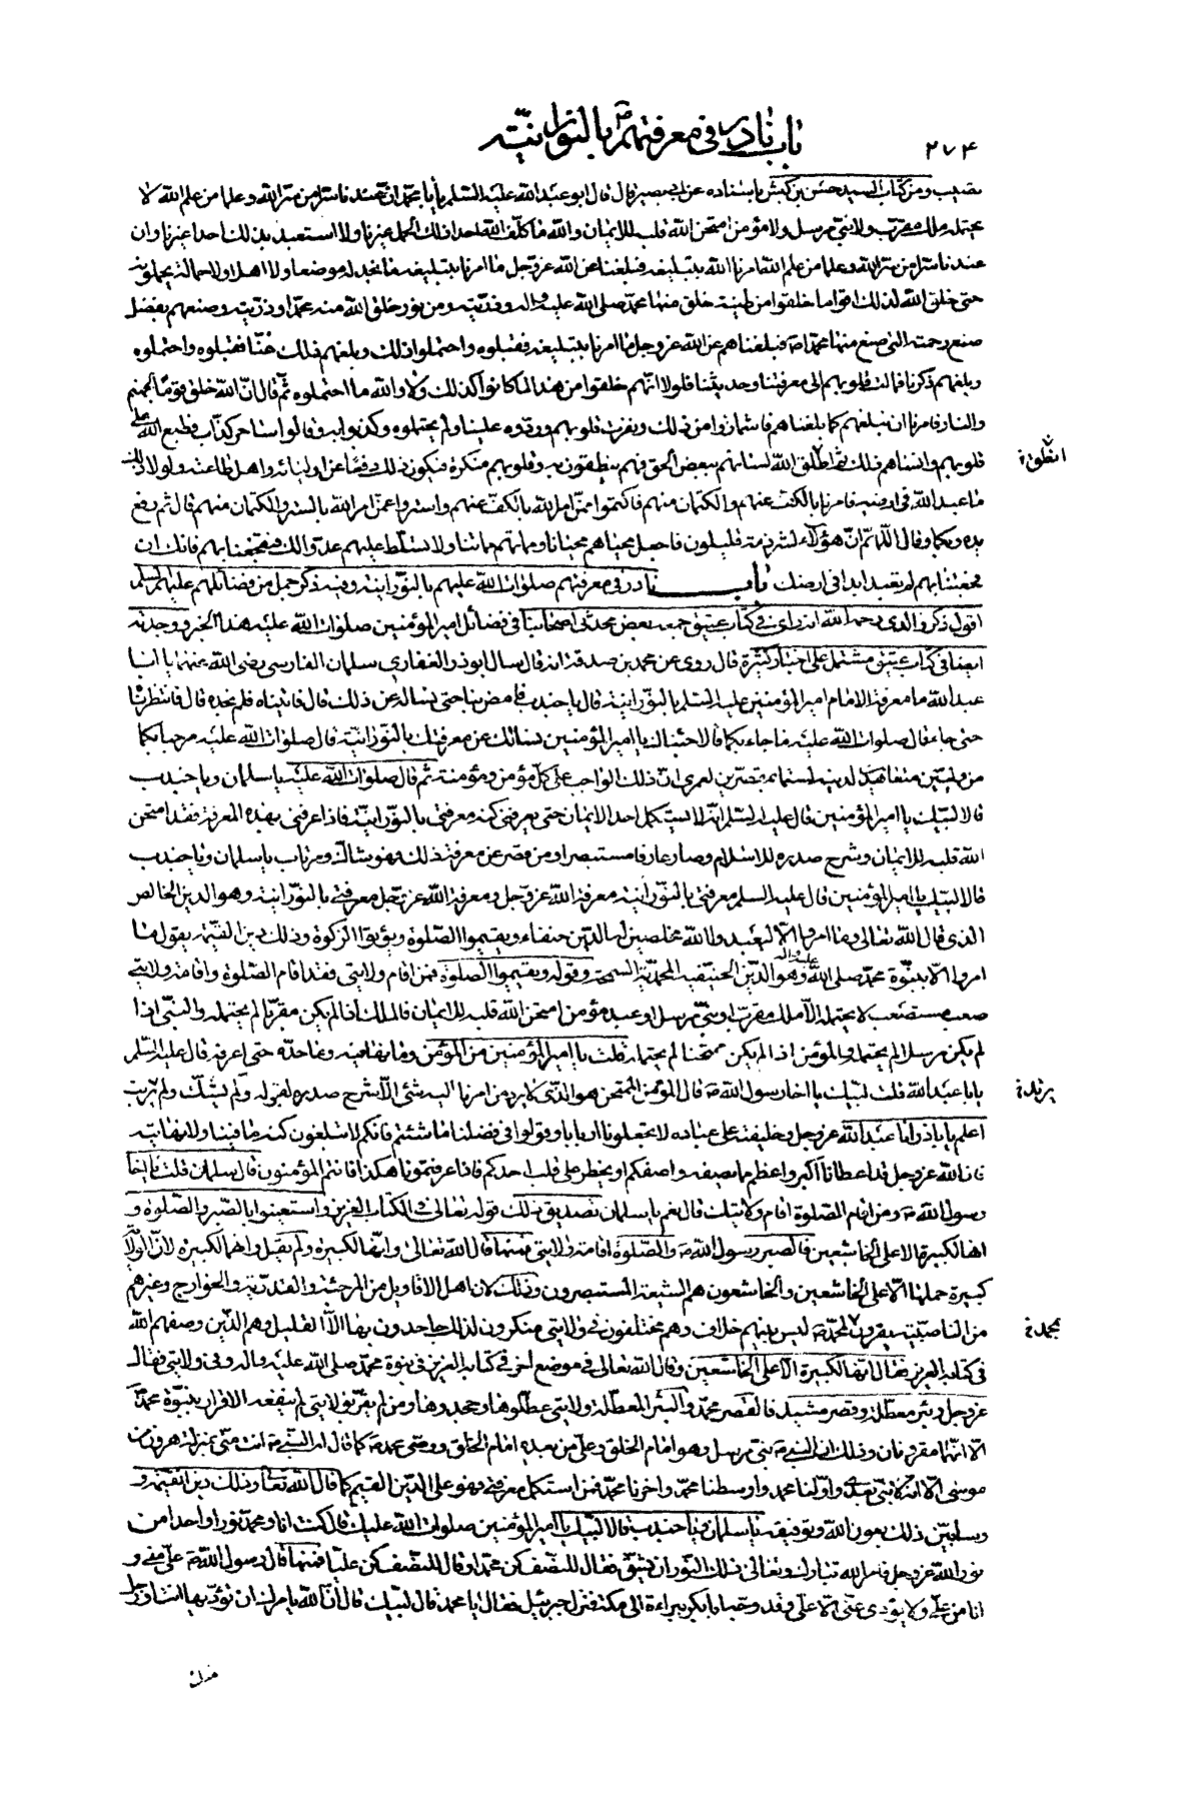 باب نادر فی معرفتهم ص بالنورانیّة
۲۷۴
نصیب ومن کتاب السید حسن بن کبش باسناده عن ابی بصیر قال قال ابو عبد الله علیه السلم یا با محمد ان عندنا سرا من سر الله وعلما من علم الله لا
یحتمله ملك مقرب ولا نبی مرسل ولا مؤمن امتحن الله قلبه للایمان والله ما کلف الله احدا ذلك الحمل غیرنا ولا استعبد بذلك احدا غیرنا وان
عندنا سرا من سر الله وعلما من علم الله امرنا الله بتبلیغه فبلغنا عن الله عز وجل ما امرنا بتبلیغه ما نجد له موضعا ولا اهلا ولا حمالة یحملونه
حتی خلق الله لذلك اقواما خلقوا من طینة خلق منها محمد صلی الله علیه واله وذریته ومن نور خلق الله منه محمدا وذریته وصنعهم بفضل
صنع رحمته التی صنع منها محمدا ص فبلغناهم عن الله عز وجل ما امرنا بتبلیغه فقبلوه واحتملوا ذلك وبلغهم ذلك عنا فقبلوه واحتملوه
وبلغهم ذکرنا فمالت قلوبهم الی معرفتنا وحدیثنا فلولا انهم خلقوا من هذا لما کانوا کذلك ولا والله ما احتملوه ثم قال ان الله خلق قوما لجهنم
والنار فامرنا ان نبلغهم کما بلغناهم فاشمازوا من ذلك ونفرت قلوبهم وردوه علینا ولم یحتملوه وکذبوا به وقالوا ساحر کذاب فطبع الله علی
قلوبهم وانساهم ذلك ثم اطلق الله لسانهم ببعض الحق فهم ینطقون به وقلوبهم منکرة فیکون ذلك دفعا عن اولیائه واهل طاعته ولولا ذلك
انطق ن
ما عبد الله فی ارضه فامرنا بالکف عنهم والکتمان منهم فاکتموا ممن امر الله بالکف عنهم واستروا عمن امر الله بالستر والکتمان منهم قال ثم رفع
یده وبکا وقال اللهم ان هؤلاء لشرذمة قلیلون فاجعل محیاهم محیانا ومماتهم مماتنا ولا تسلط علیهم عدوا لك فتفجعنا بهم فانك ان
فجعتنا بهم لم تعبد ابدا فی ارضك باب نادر فی معرفتهم صلوات الله علیهم بالنورانیة وفیه ذکر جمل من فضائلهم علیهم السلم
اقول ذکر والدی رحمه الله انه رای فی کتاب عتیق جمعه بعض محدثی اصحابنا فی فضائل امیر المؤمنین صلوات الله علیه هذا الخبر ووجدته
ایضا فی کتاب عتیق مشتمل علی اخبار کثیرة قال روی عن محمد بن صدقة انه قال سال ابو ذر الغفاری سلمان الفارسی رضی الله عنهما یا ابا
عبد الله ما معرفة الامام امیر المؤمنین علیه السلم بالنورانیة قال یا جندب فامض بنا حتی نساله عن ذلك قال فاتیناه فلم نجده قال فانتظرناه
حتی جاء قال صلوات الله علیه ما جاء بکما قالا جئناك یا امیر المؤمنین نسالك عن معرفتك بالنورانیة قال صلوات الله علیه مرحبا بکما
من ولیین متعاهدین لدینه لستما بمقصرین لعمری ان ذلك الواجب علی کل مؤمن ومؤمنة ثم قال صلوات الله علیه یا سلمان ویا جندب
قالا لبیك یا امیر المؤمنین قال علیه السلم انه لا یستکمل احد الایمان حتی یعرفنی کنه معرفتی بالنورانیة فاذا عرفنی بهذه المعرفة فقد امتحن
الله قلبه للایمان وشرح صدره للاسلام وصار عارفا مستبصرا ومن قصر عن معرفة ذلك فهو شاك ومرتاب یا سلمان ویا جندب
قالا لبیك یا امیر المؤمنین قال علیه السلم معرفتی بالنورانیة معرفة الله عز وجل ومعرفة الله عز وجل معرفتی بالنورانیة وهو الدین الخالص
الذی قال الله تعالی وما امروا الا لیعبدوا الله مخلصین له الدین حنفاء ویقیموا الصلوة ویؤتوا الزکوة وذلك دین القیمة یقول ما
امروا الا بنبوة محمد صلی الله علیه واله وهو الدین الحنیفیة المحمدیة السمحة وقوله ویقیموا الصلوة فمن اقام ولایتی فقد اقام الصلوة واقامة ولایتی
صعب مستصعب لا یحتمله الا ملك مقرب او نبی مرسل او عبد مؤمن امتحن الله قلبه للایمان فالملك اذا لم یکن مقربا لم یحتمله والنبی اذا
لم یکن مرسلا لم یحتمله والمؤمن اذا لم یکن ممتحنا لم یحتمله قلت یا امیر المؤمنین من المؤمن وما نهایته وما حده حتی اعرفه قال علیه السلم
یا با عبد الله قلت لبیك یا اخا رسول الله ص قال المؤمن الممتحن هو الذی لا یرد من امرنا الیه شئ الا شرح صدره لقبوله ولم یشك ولم یرتب
یرتد ن
اعلم یا باذر انا عبد الله عز وجل وخلیفته علی عباده لا تجعلونا اربابا وقولوا فی فضلنا ما شئتم فانکم لا تبلغون کنه ما فینا ولا نهایته
فان الله عز وجل قد اعطانا اکبر واعظم مما یصفه واصفکم او یخطر علی قلب احدکم فاذا عرفتمونا هکذا فانتم المؤمنون قال سلمان قلت یا اخا
رسول الله ص ومن اقام الصلوة اقام ولایتك قال نعم یا سلمان تصدیق ذلك قوله تعالی فی الکتاب العزیز واستعینوا بالصبر والصلوة و
انها لکبیرة الا علی الخاشعین فالصبر رسول الله ص والصلوة اقامة ولایتی فمنها قال الله تعالی وانها لکبیرة ولم یقل وانهما لکبیرة لان الولایة
کبیرة حملها الا علی الخاشعین والخاشعون هم الشیعة المستبصرون وذلك لان اهل الاقاویل من المرجئة والقدریة والخوارج وغیرهم
من الناصبیة یقرون لمحمد ص لیس بینهم خلاف وهم مختلفون فی ولایتی منکرون لذلك جاحدون بها الا القلیل وهم الذین وصفهم الله
بمحمد ن
فی کتابه العزیز فقال انها لکبیرة الا علی الخاشعین وقال الله تعالی فی موضع اخر فی کتابه العزیز فی نبوة محمد صلی الله علیه واله وفی ولایتی فقال
عز وجل وبئر معطلة وقصر مشید فالقصر محمد والبئر المعطلة ولایتی عطلوها وجحدوها ومن لم یقر بولایتی لم ینفعه الاقرار بنبوة محمد
الا انهما مقرونان وذلك ان النبی ص نبی مرسل وهو امام الخلق وعلی من بعده امام الخلق ووصی محمد ص کما قال له النبی ص انت منی بمنزلة هرون من
موسی الا انه لا نبی بعدی واولنا محمد واوسطنا محمد واخرنا محمد فمن استکمل معرفتی فهو علی الدین القیم کما قال الله تعالی وذلك دین القیمة و
وسابین ذلك بعون الله وتوفیقه یا سلمان ویا جندب قالا لبیك یا امیر المؤمنین صلوات الله علیك قال کنت انا ومحمد نورا واحدا من
نور الله عز وجل فامر الله تبارك وتعالی ذلك النور ان یشق فقال للنصف کن محمدا وقال للنصف کن علیا فمنها قال رسول الله ص علی منی و
انا من علی ولا یؤدی عنی الا علی وقد وجه ابا بکر ببراءة الی مکة فنزل جبرئیل فقال یا محمد قال لبیك قال ان الله یامرك ان تؤدیها انت او رجل
منك